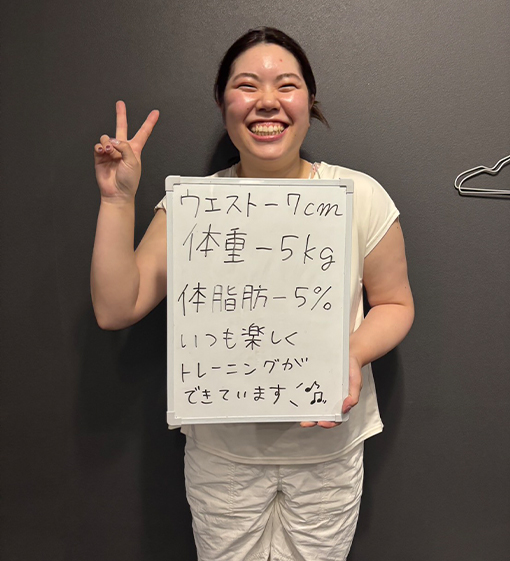 ウエスト-7cm
体重-5kg
体脂肪-5%
いつも楽しく
トレーニングが
できています♫